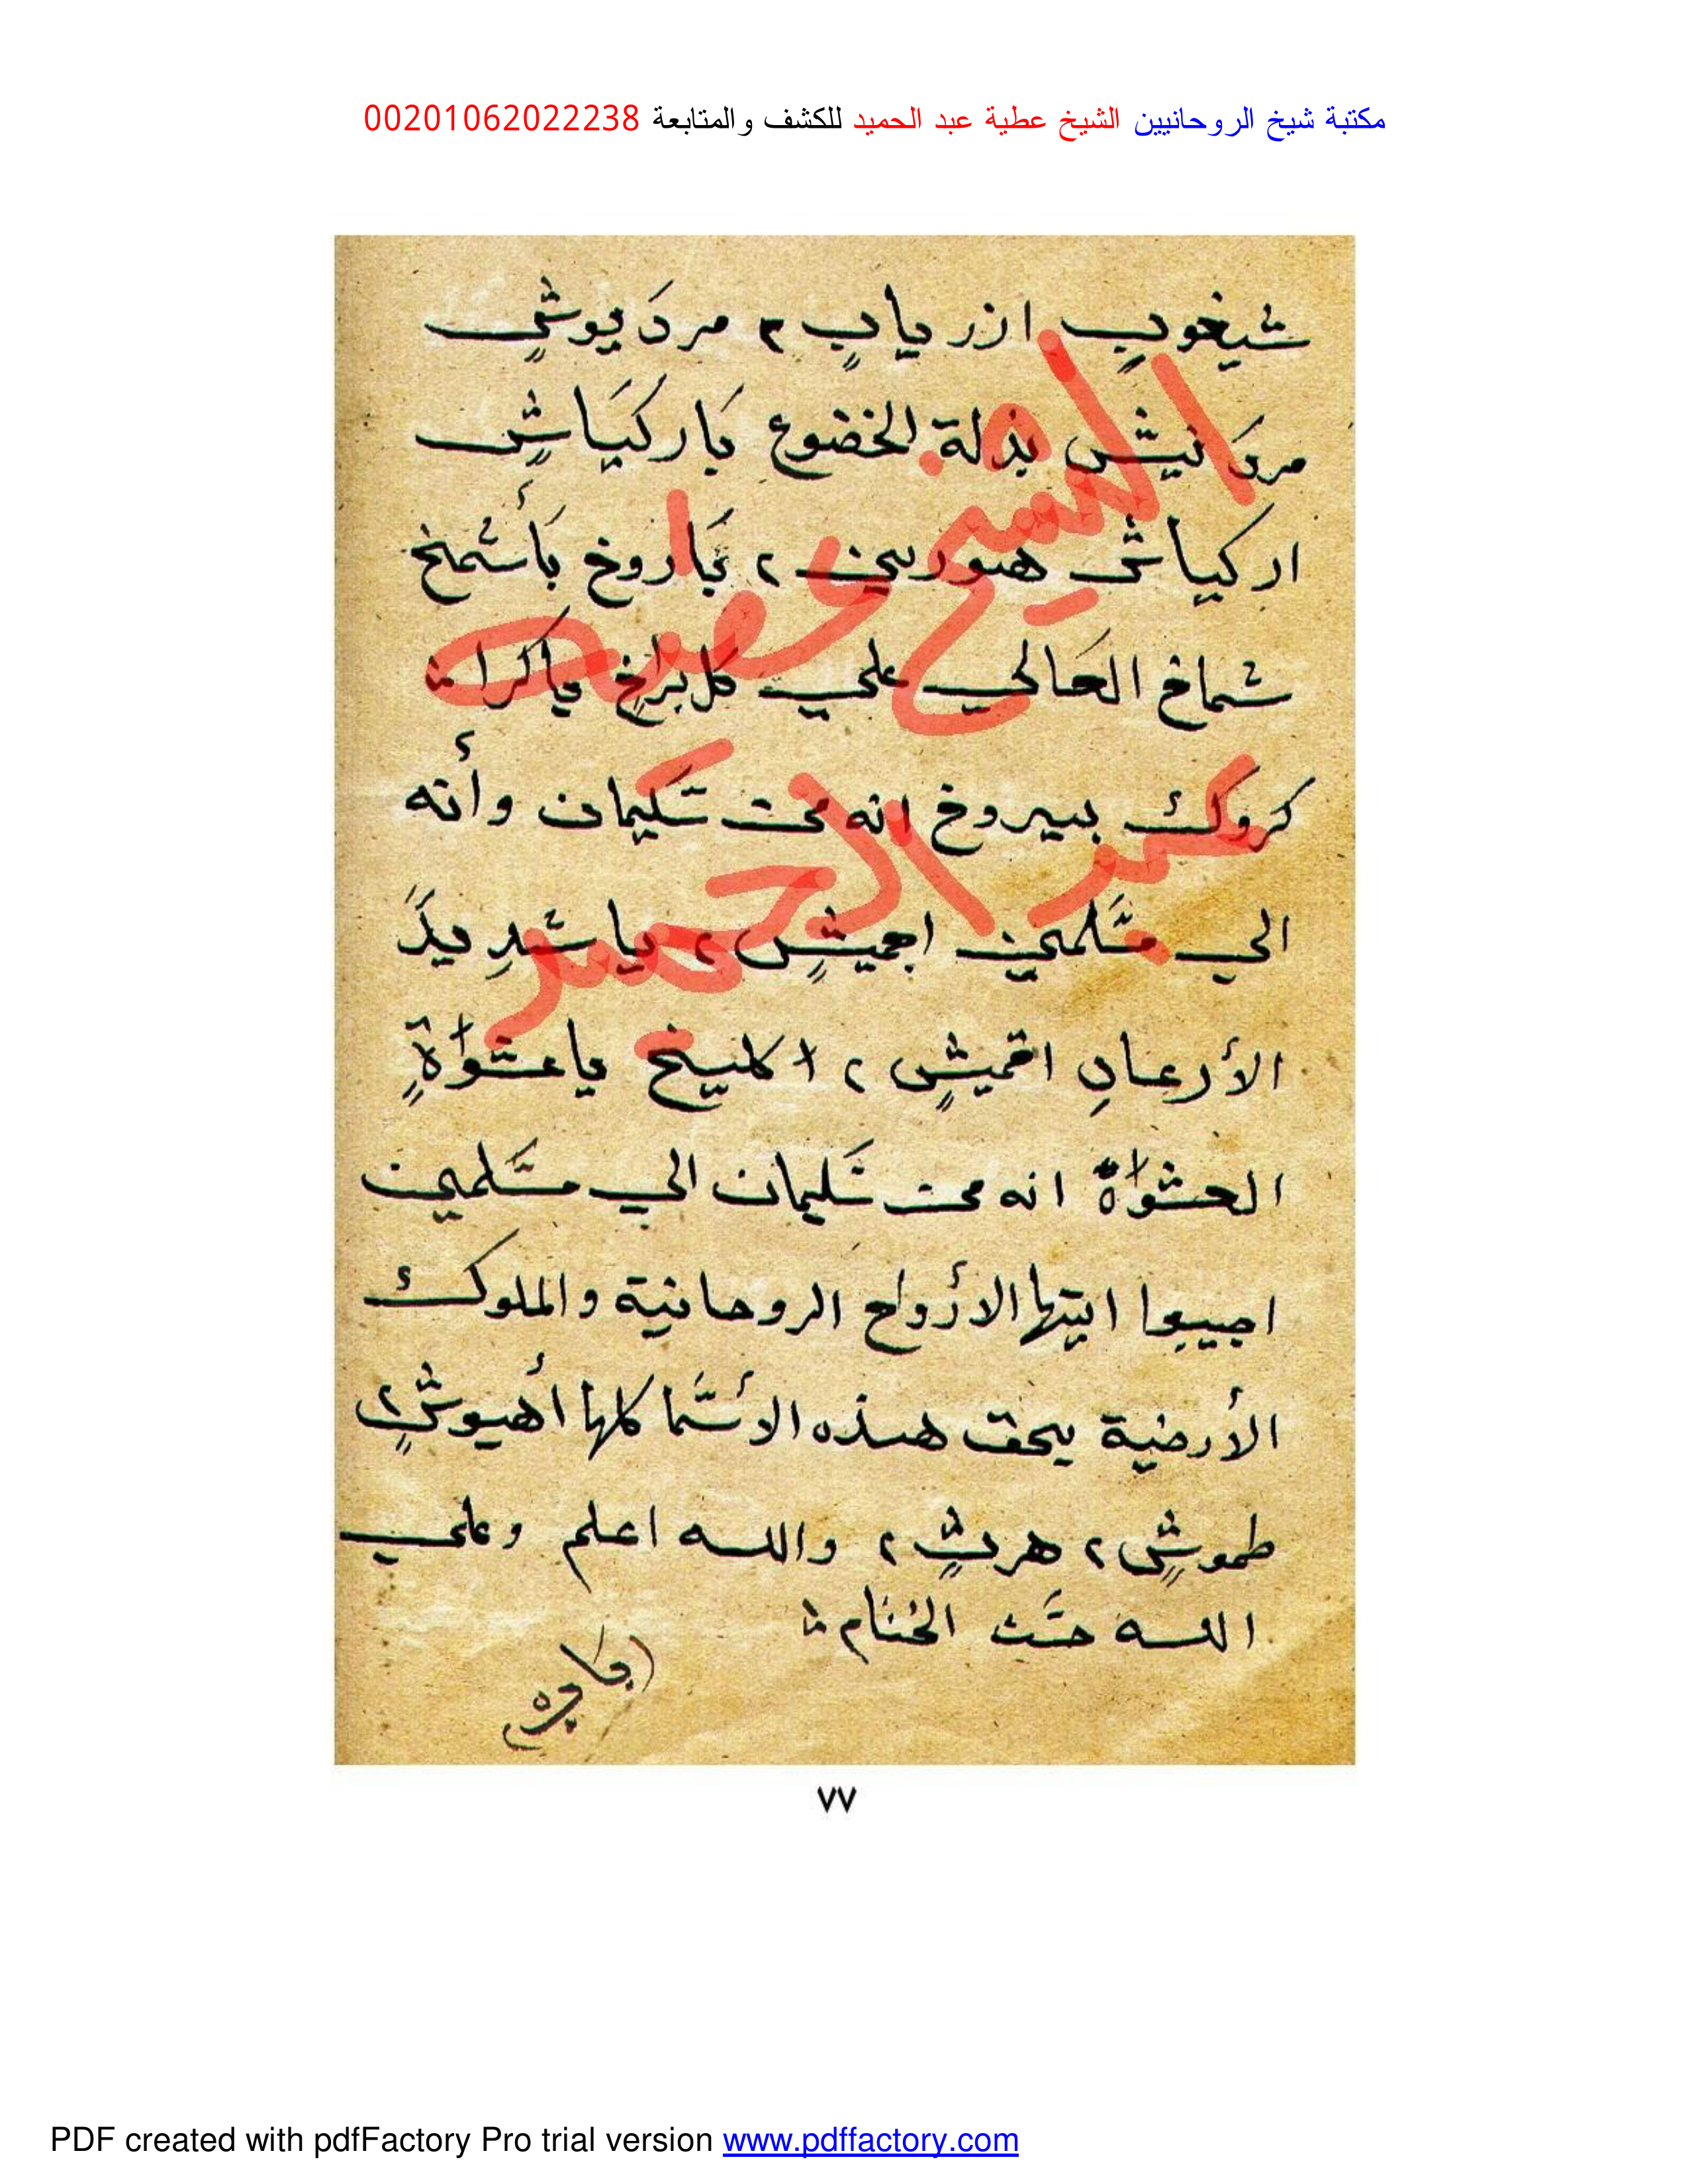 مكتبة شيخ الروحانيين الشيخ عطية عبد الحميد للكشف والمتابعة 00201062022238
شيخوبٍ ازر يابٍ ٣ مردَيوشٍ
مردَنيش بذلة الخضوع بَاركيَاشٍ
اركياش هورين ٢ بَاروخ بَأشمخ
شماخ العَالي علي كل بَراخٍ ياكرا
كروك بيروخ انه من سَليمان وأنه
الي مسَلمين اجميشٍ ٢ يا شدِيدَ
الأرعابِ اقميشٍ ٢ اكليخ ياعشواةٍ
العشواة انه من سَليمان الي مسَلمين
اجيبوا ايتها الأرواح الروحانية والملوك
الأرضية بحق هذه الأسَما كلها أهيوشٍ ٢
طموشٍ ٢ هربٍ ٢ والله اعلم وعلي
الله حسَن الختام
الشيخ عطيه
عبد الحميد
٧٧
PDF created with pdfFactory Pro trial version www.pdffactory.com